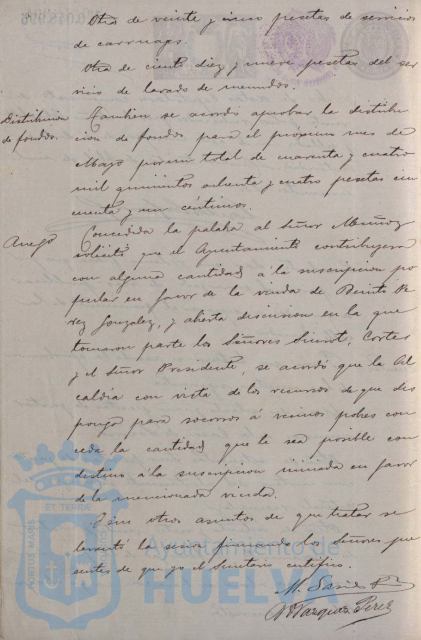 Otra de veinte y cinco pesetas de servicio
de carruages.
Otra de ciento diez y nueve pesetas del ser
vicio de lavado de menudos.
Distribucion
de fondos.
Tambien se acordó aprobar la distribu
cion de fondos para el proximo mes de
Mayo por un total de cuarenta y cuatro
mil quinientos ochenta y cuatro pesetas cin
cuenta y un céntimos.
Ruego
Concedida la palabra al Señor Muñoz
solicitó que el Ayuntamiento contribuyera
con alguna cantidad á la suscripcion po
pular en favor de la viuda de Benito Pe
rez Gonzalez, y abierta discusion en la que
tomaron parte los Señores Cortes
y el Señor Presidente, se acordó que la Al
caldia con vista de los recursos de que dis
ponga para socorros á vecinos pobres con
ceda la cantidad que le sea posible con
destino á la suscripcion iniciada en favor
de la mencionada viuda.
Y sin otros asuntos de que tratar se
levantó la sesion firmando los señores pre
sentes de que yo el Secretario certifico.
M. Garcia
Vazquez Perez
PORTUS MARIS
ET TERRAE
Ayuntamiento de
HUELVA